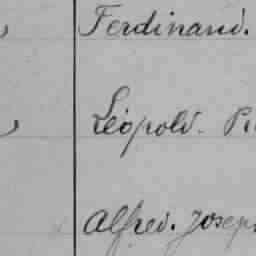 Ferdinand.
Léopold. Pi
Alfred. Joseph